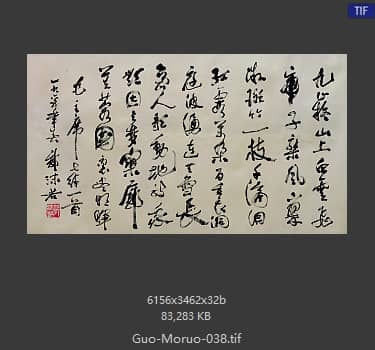 TIF
九嶷山上白雲飛
帝子乘風下翠
微斑竹一枝千滴淚
紅霞萬朵百重衣洞
庭波涌連天雪長
島人歌動地詩我
欲因之夢寥廓
芙蓉國裏盡朝暉
毛主席七律一首
郭沫若
6156x3462x32b
83,283 KB
Guo-Moruo-038.tif